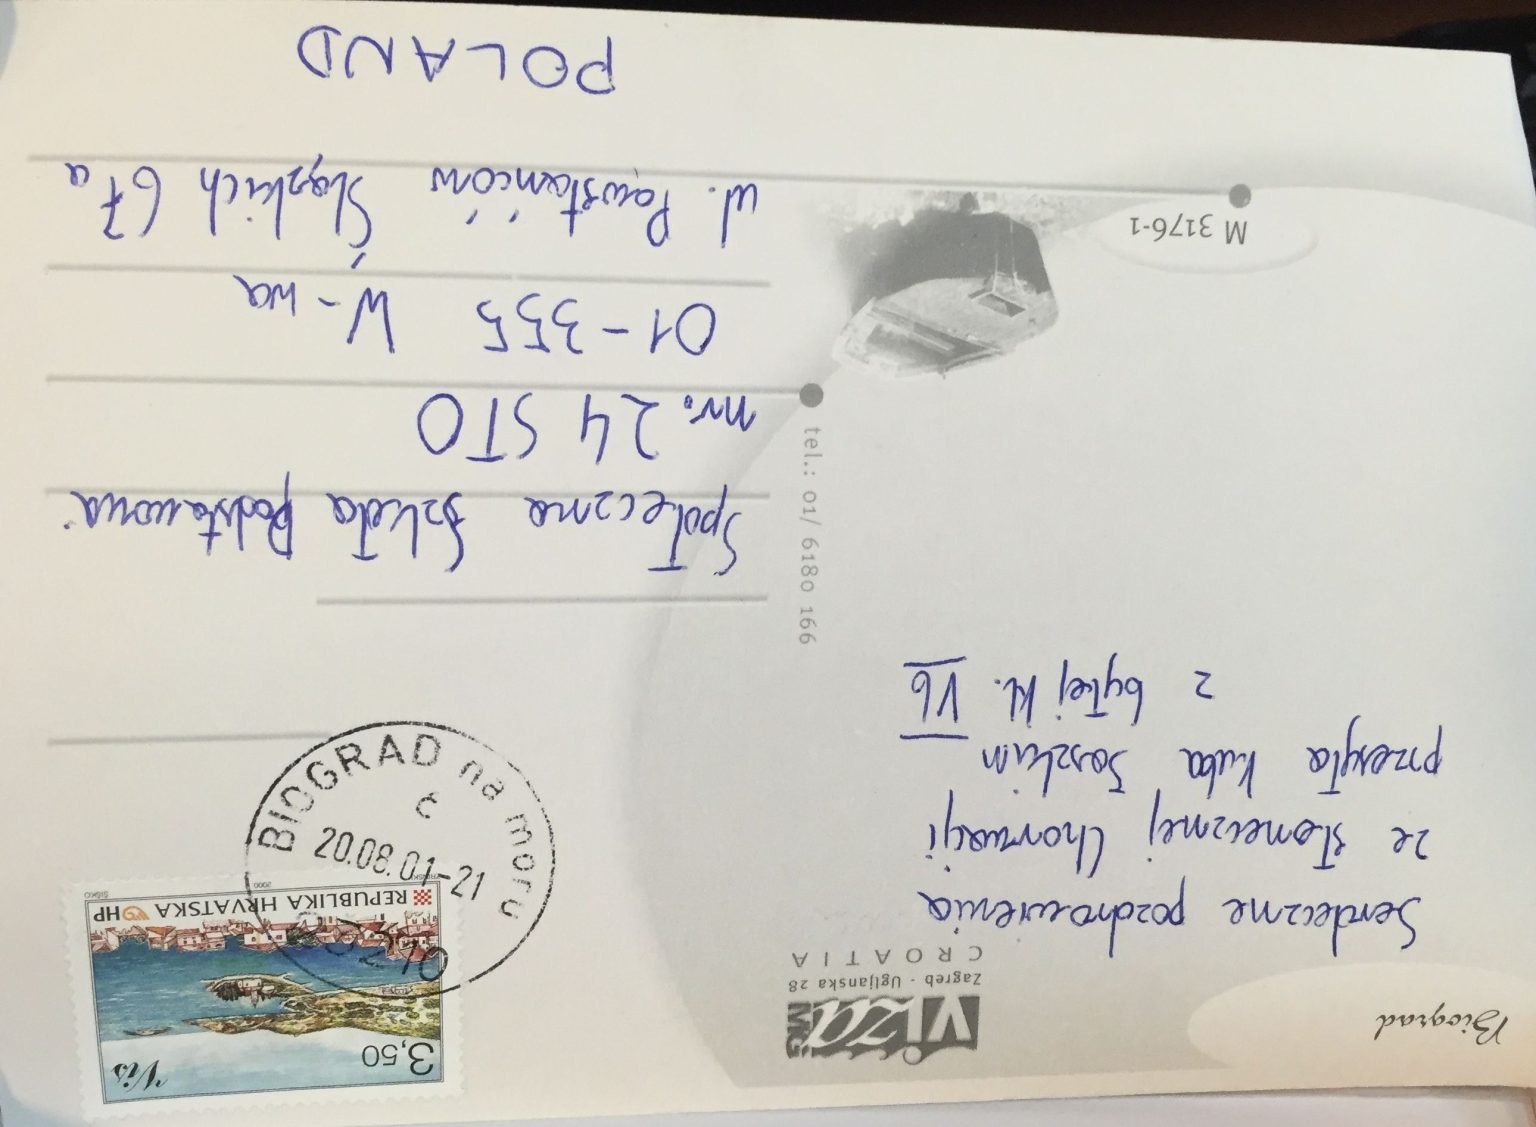 Biograd
viza MG
Zagreb - Ugljanska 28
CROATIA
Serdeczne pozdrowienia
ze słonecznej Chorwacji
przesyła Kuba
z byłej kl. Vb
tel.: 01/ 6180 166
M 3176-1
3,50
Vis
REPUBLIKA HRVATSKA
HP
2000
ŠIŠKO
BIOGRAD na moru
č
20.08.01-21
23210
Społeczna Szkoła Podstawowa
nr. 24 STO
01-355 W-wa
ul. Powstańców Śląskich 67a
POLAND